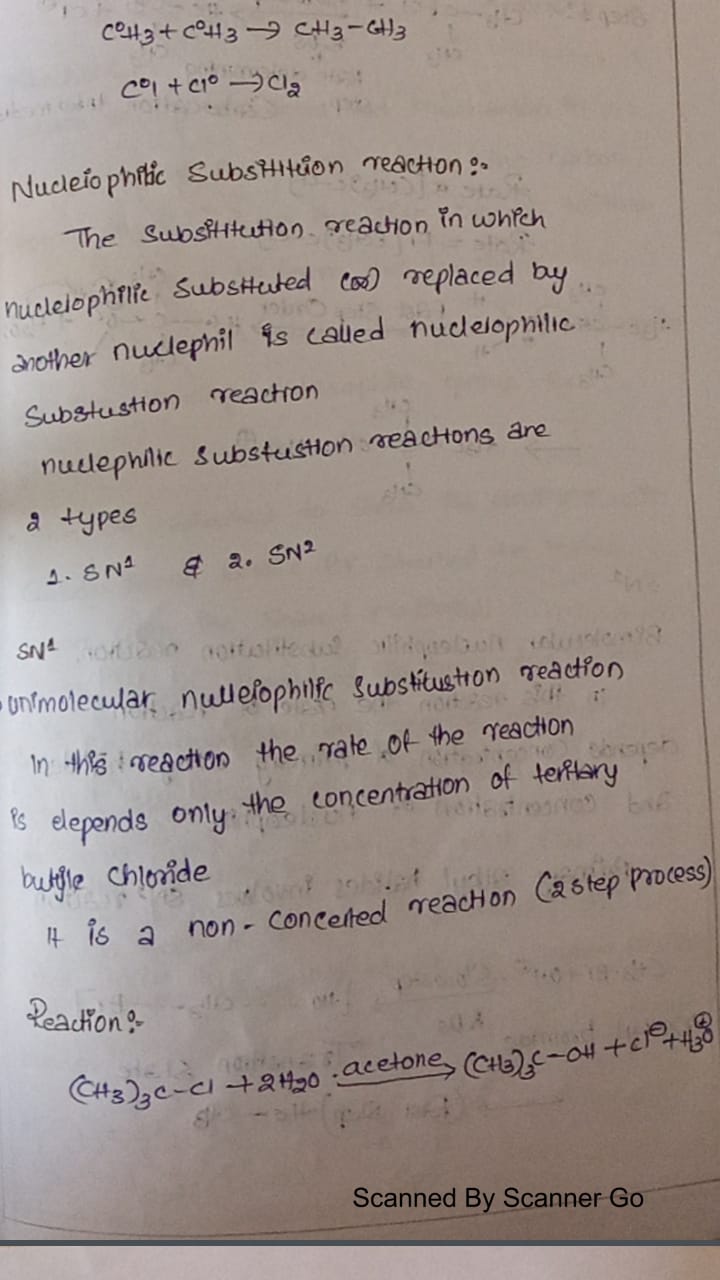 C°H3 + C°H3 → CH3-CH3
C°l + Cl° → Cl2
Nucleiophilic Substitution reaction :-
The Substitution reaction in which
nucleiophilic Substtuted (or) replaced by
another nuclephil is called nucleiophilic
Substustion reaction
nuclephilic substustion reactions are
2 types
1. SN1 & 2. SN2
SN1
unimolecular nulleiophilic substitustion reaction
In this reaction the rate of the reaction
is depends only the concentration of tertiary
butyle chloride
It is a non-concerted reaction (2 step process)
Reaction :-
(CH3)3C-Cl + 2H2O acetone→ (CH3)3C-OH + Cl⊖ + H3O⊕
Scanned By Scanner Go